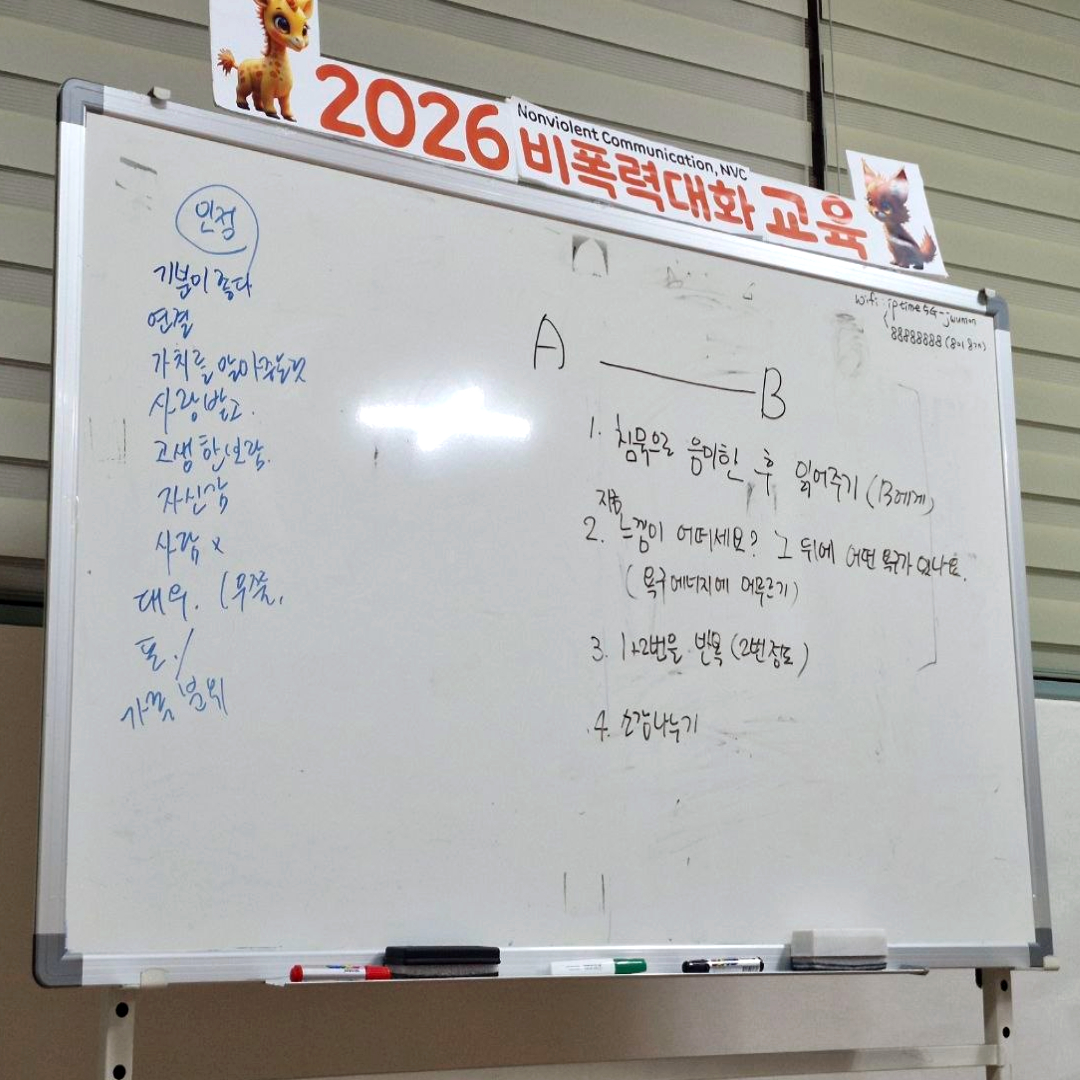 2026
Nonviolent Communication, NVC
비폭력대화 교육
wifi : iptime5G-
88888888 (8이 8개)
인정
기분이 좋다
연결
가치를 알아주는것
사랑받고.
고생한보람.
자신감
사람 x
대우.
A
B
1. 침묵으로 음미한 후 읽어주기 (B에게)
지금
2. 느낌이 어떠세요? 그 뒤에 어떤 욕구가 있나요.
(욕구에너지에 머무르기)
3. 1+2번을 반복 (2번정도)
4. 소감나누기